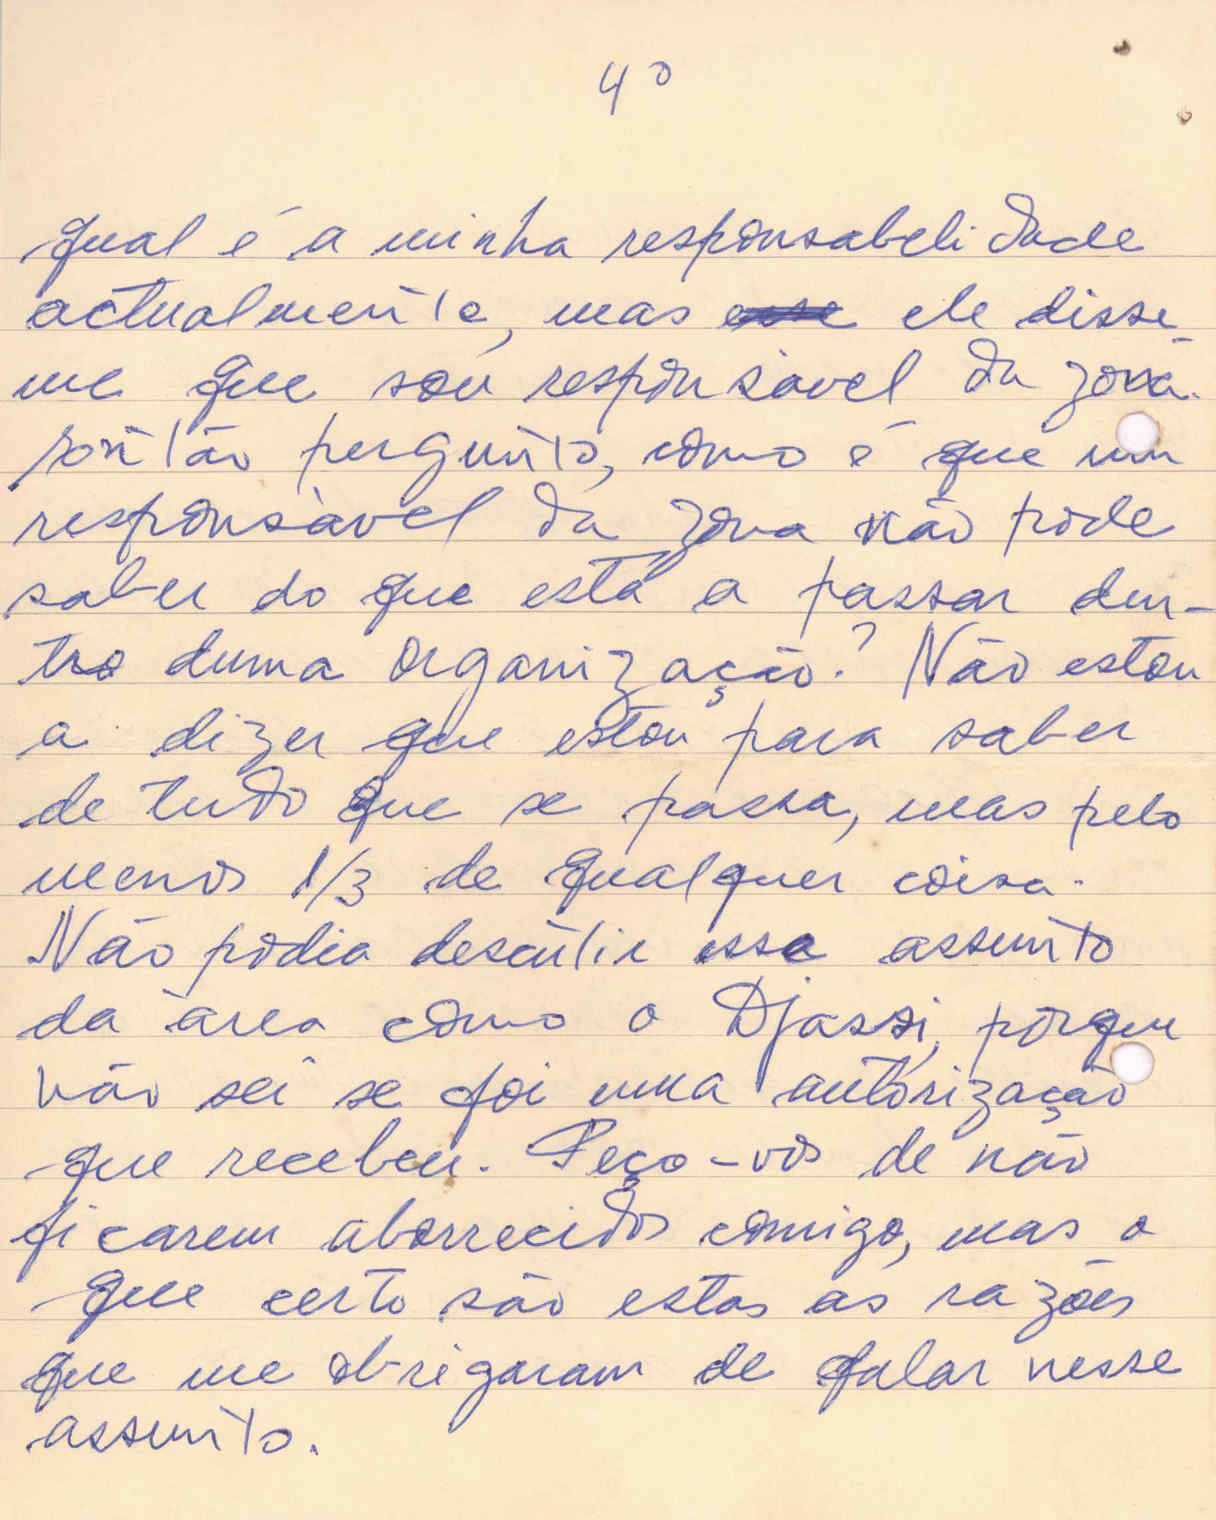 4º
qual é a minha responsabelidade
actualmente, mas ~~esse~~ ele disse-
me que sou responsàvel da zona.
pontão pergunto, como é que um
responsàvel da zona não pode
saber do que está a passar den-
tro duma organização? Não estou
a dizer que estou para saber
de tudo que se passa, mas pelo
menos 1/3 de qualquer coisa.
Não podia descutir esse assunto
da àrea como o Djassi, porque
não sei se foi uma autorização
que recebeu. Peço-vos de não
ficarem aborrecidos comigo, mas o
que certo são estas as razões
que me obrigaram de falar nesse
assunto.